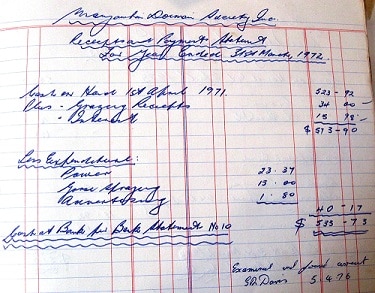 Society Inc.
Receipts and Payments Statement
For Year Ended 31st March, 1972.
Cash on Hand 1st April 1971. 523-92
Plus - Grazing Receipts 34 00
- Interest 15 98
$ 573-90
Less Expenditure:
Power 23.37
Gorse Spraying 15.00
1.80
40-17
Cash at Bank per Bank Statement No 10 $ 533-73
Examined and found correct
5.4.76